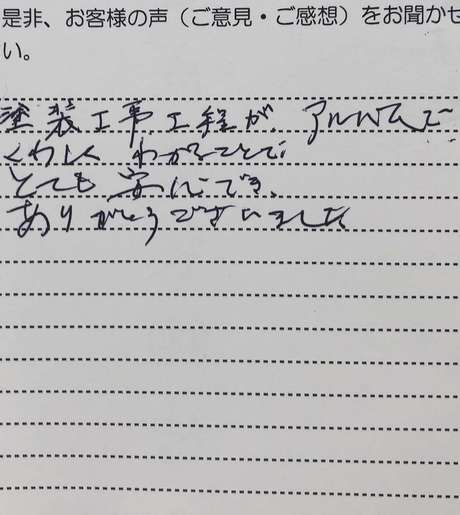 是非、お客様の声（ご意見・ご感想）をお聞かせ
い。
塗装工事工程が、アルバムで
くわしくわかることで
とても安心でき、
ありがとうございました